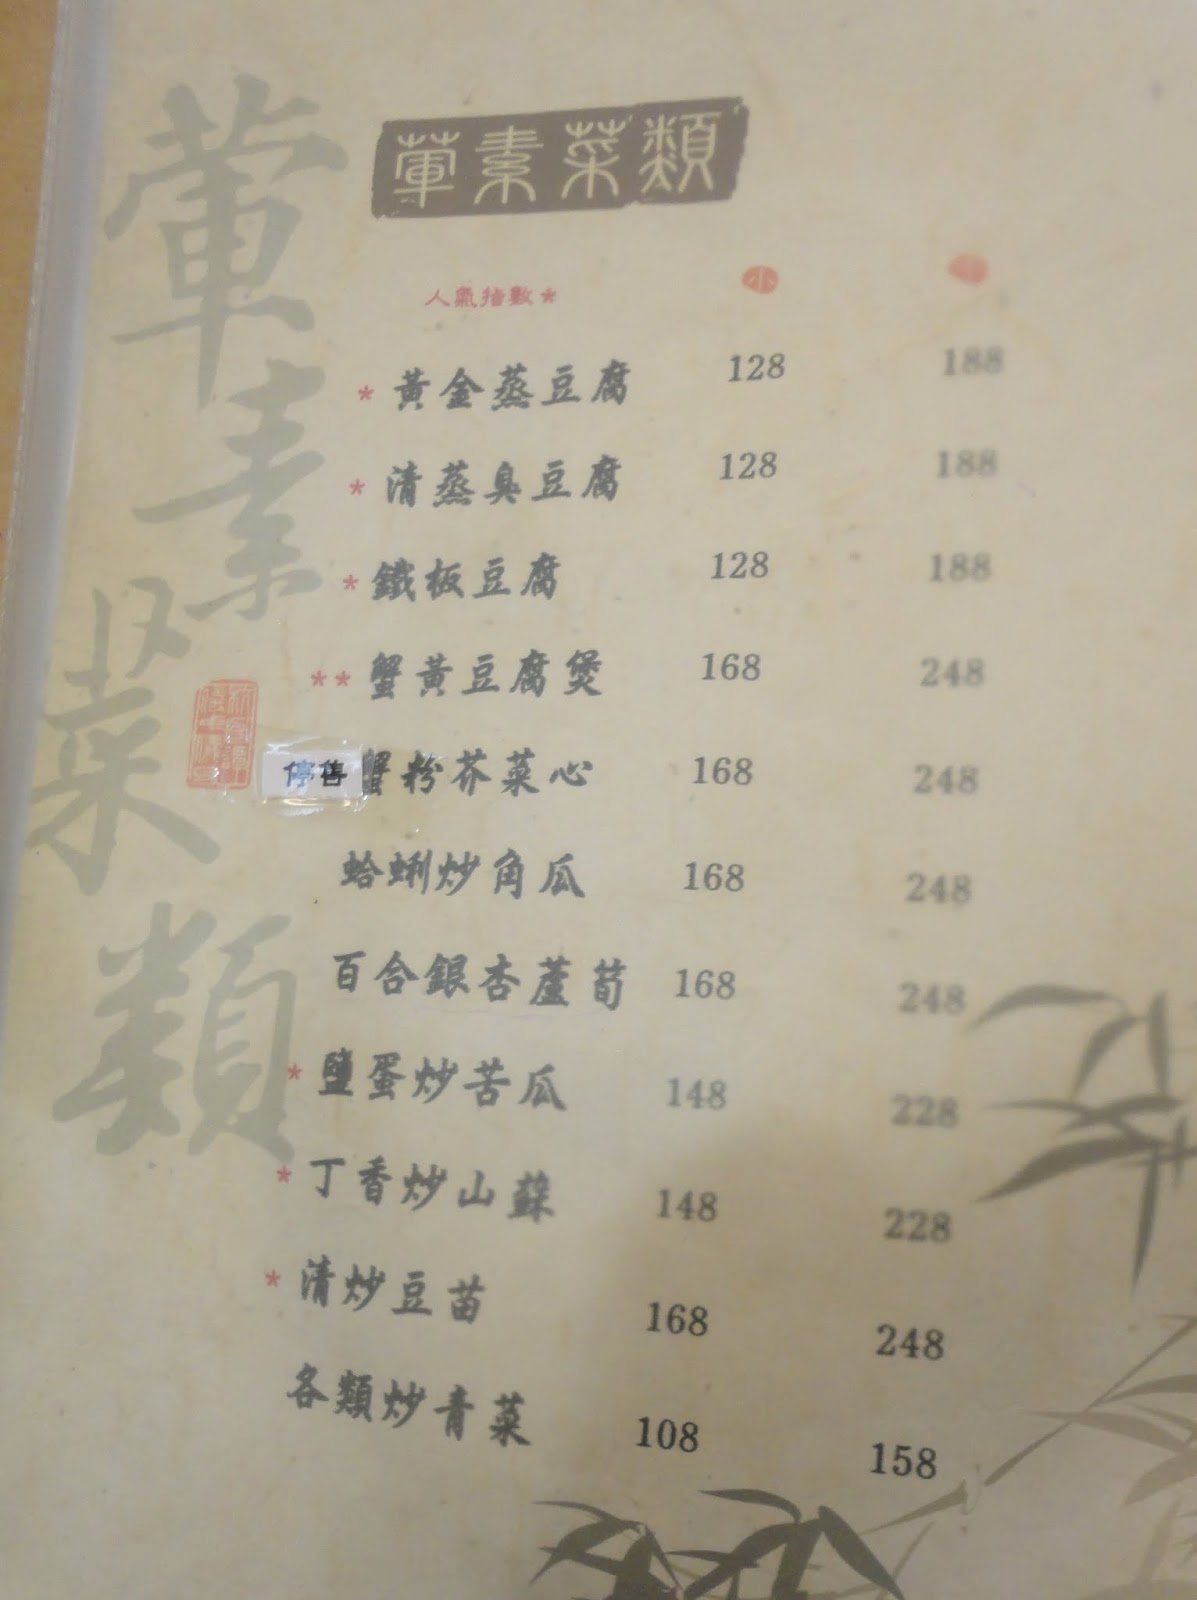 葷素菜類
葷素菜類
人氣指數*
小 中
* 黃金蒸豆腐 128 188
* 清蒸臭豆腐 128 188
* 鐵板豆腐 128 188
** 蟹黃豆腐煲 168 248
停售 蟹粉芥菜心 168 248
蛤蜊炒角瓜 168 248
百合銀杏蘆筍 168 248
* 鹽蛋炒苦瓜 148 228
* 丁香炒山蘇 148 228
* 清炒豆苗 168 248
各類炒青菜 108 158